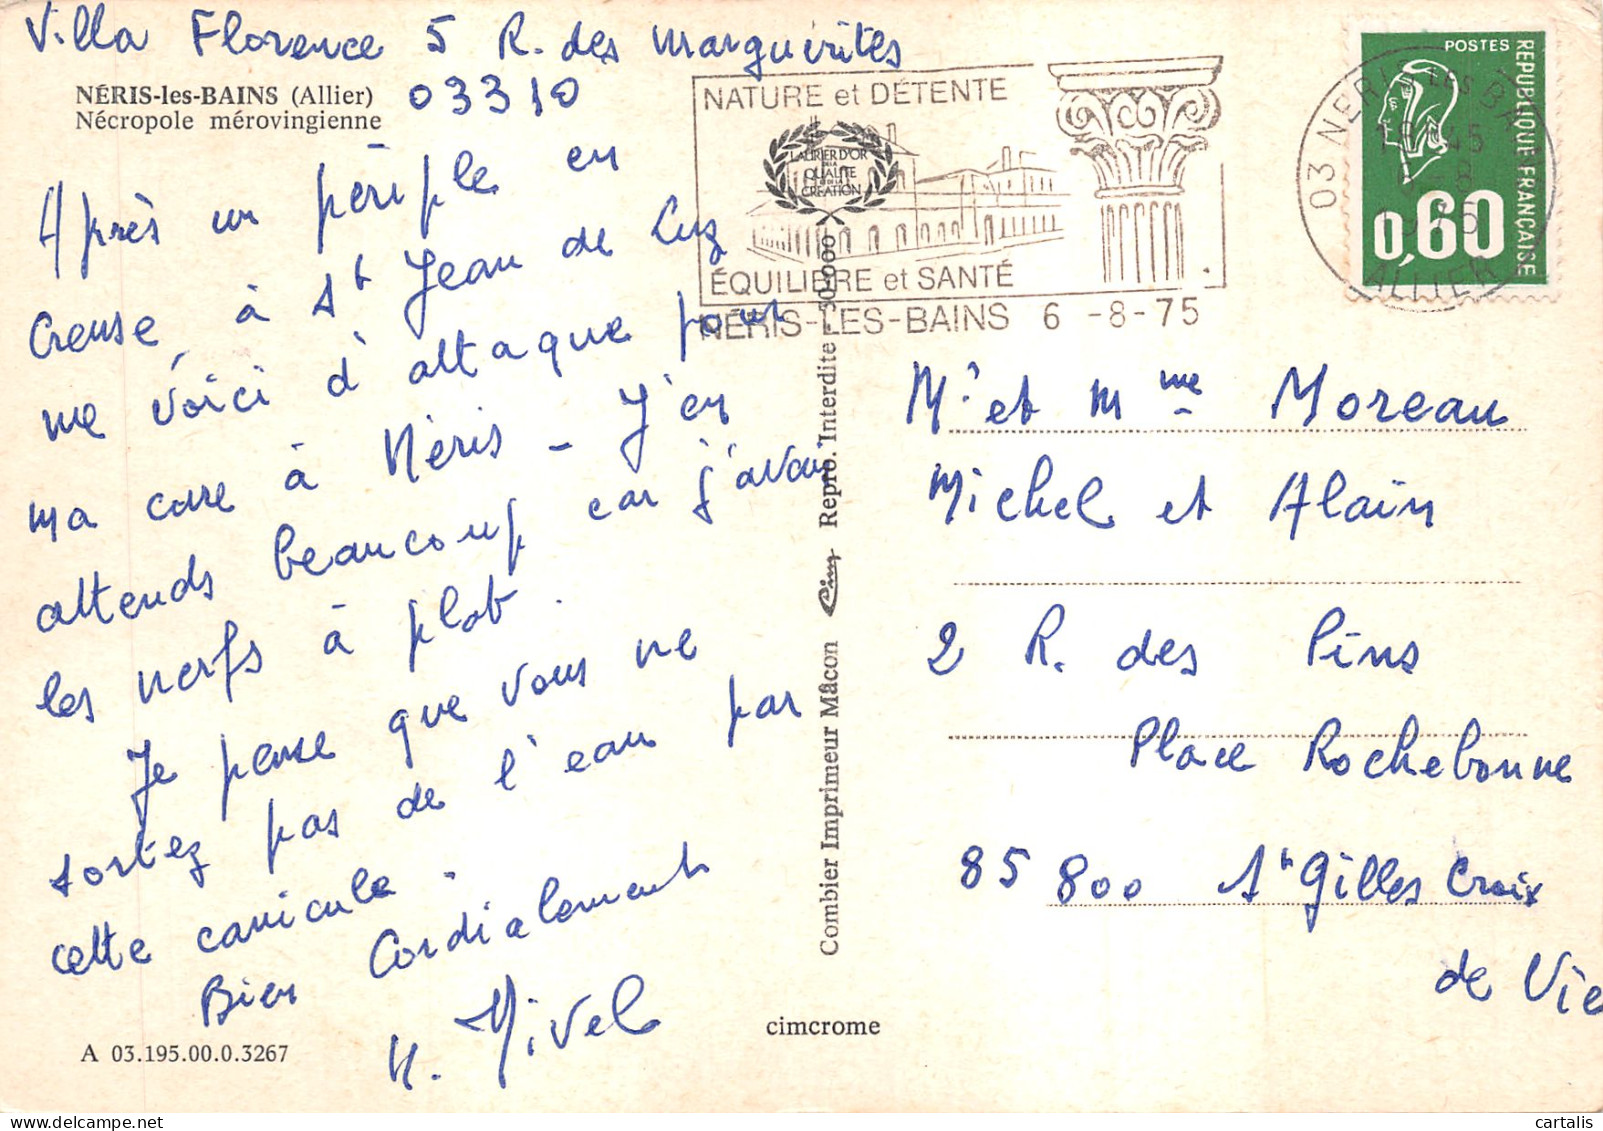 Villa Florence 5 R. des Marguerites
03310
NÉRIS-les-BAINS (Allier)
Nécropole mérovingienne
Après un périple en
Creuse, à St Jean de Luz
me voici d'attaque pour
ma cure à Néris - J'en
attends beaucoup car j'avais
les nerfs à plat.
Je pense que vous ne
sortez pas de l'eau par
cette canicule.
Bien Cordialement
Nivel
A 03.195.00.0.3267
cimcrome
Combier Imprimeur Mâcon Cim Repro. Interdite - 50-000
NATURE et DÉTENTE
LAURIER D'OR
DE LA
QUALITE
ET DE LA
CREATION
ÉQUILIBRE et SANTÉ
NÉRIS-LES-BAINS 6 -8-75
POSTES
REPUBLIQUE FRANÇAISE
0,60
03 NERIS LES BAINS
ALLIER
Mr et Mme Moreau
Michel et Alain
2 R. des Pins
Place Rochebonne
85 800 St Gilles Croix
de Vie
cartalis.com